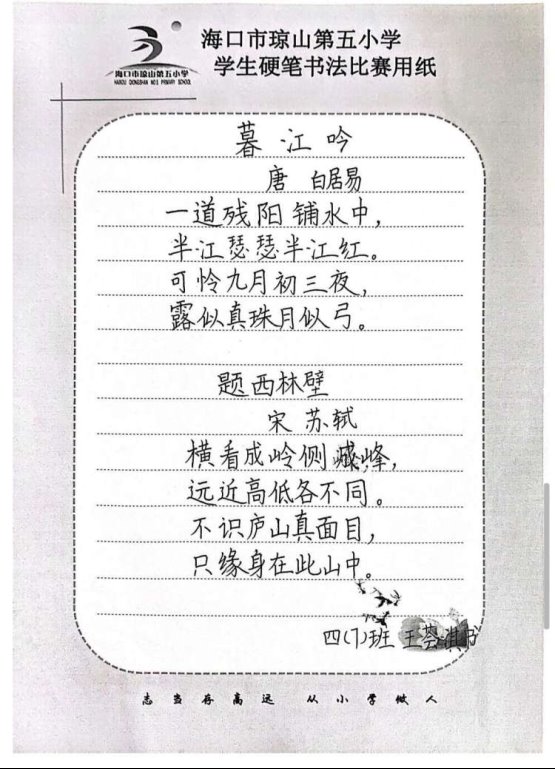 海口市琼山第五小学
学生硬笔书法比赛用纸
海口市琼山第五小学
暮江吟
唐 白居易
一道残阳铺水中，
半江瑟瑟半江红。
可怜九月初三夜，
露似真珠月似弓。
题西林壁
宋 苏轼
横看成岭侧成峰，
远近高低各不同。
不识庐山真面目，
只缘身在此山中。
四(7)班 王荟淇书
志当存高远 从小学做人